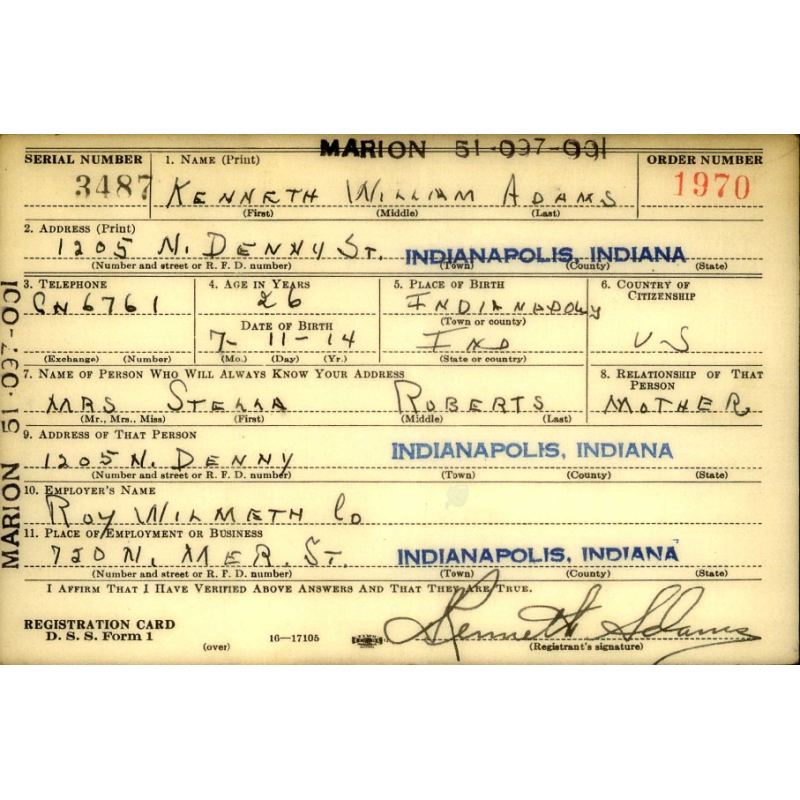 MARION 51-097-001
SERIAL NUMBER 1. NAME (Print) ORDER NUMBER
3487 KENNETH WILLIAM ADAMS 1970
(First) (Middle) (Last)
2. ADDRESS (Print)
1205 N. DENNY ST. INDIANAPOLIS, INDIANA
(Number and street or R. F. D. number) (Town) (County) (State)
3. TELEPHONE 4. AGE IN YEARS 5. PLACE OF BIRTH 6. COUNTRY OF CITIZENSHIP
6761 26
(Town or county)
DATE OF BIRTH
7- 11-14 IND US
(Exchange) (Number) (Mo.) (Day) (Yr.) (State or country)
7. NAME OF PERSON WHO WILL ALWAYS KNOW YOUR ADDRESS 8. RELATIONSHIP OF THAT PERSON
MRS STELLA ROBERTS MOTHER
(Mr., Mrs., Miss) (First) (Middle) (Last)
9. ADDRESS OF THAT PERSON
1205 N. DENNY INDIANAPOLIS, INDIANA
(Number and street or R. F. D. number) (Town) (County) (State)
10. EMPLOYER'S NAME
ROY WILMETH Co
11. PLACE OF EMPLOYMENT OR BUSINESS
N. MER. ST. INDIANAPOLIS, INDIANA
(Number and street or R. F. D. number) (Town) (County) (State)
I AFFIRM THAT I HAVE VERIFIED ABOVE ANSWERS AND THAT THEY ARE TRUE.
REGISTRATION CARD
D. S. S. Form 1 16—17105 Kenneth Adams
(over) (Registrant's signature)
MARION 51-097-001